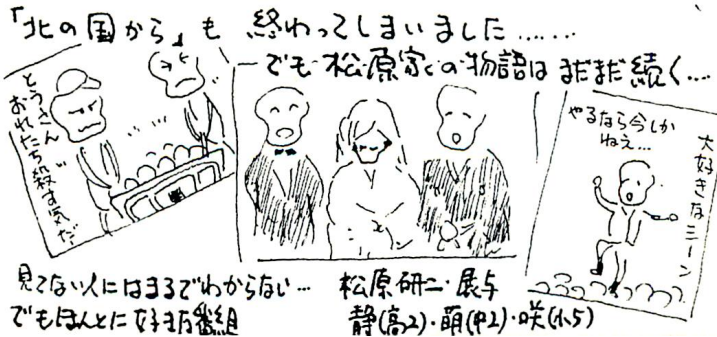 「北の国から」も 終わってしまいました……
でも 松原家の物語は まだまだ続く…
とうさん
おれたち殺す気だ
やるなら今しか
ねえ…
大好きなシーン
見てない人にはまるでわからない…
でもほんとに好きな番組
松原研二・展与
静(高2)・萌(中2)・咲(小5)